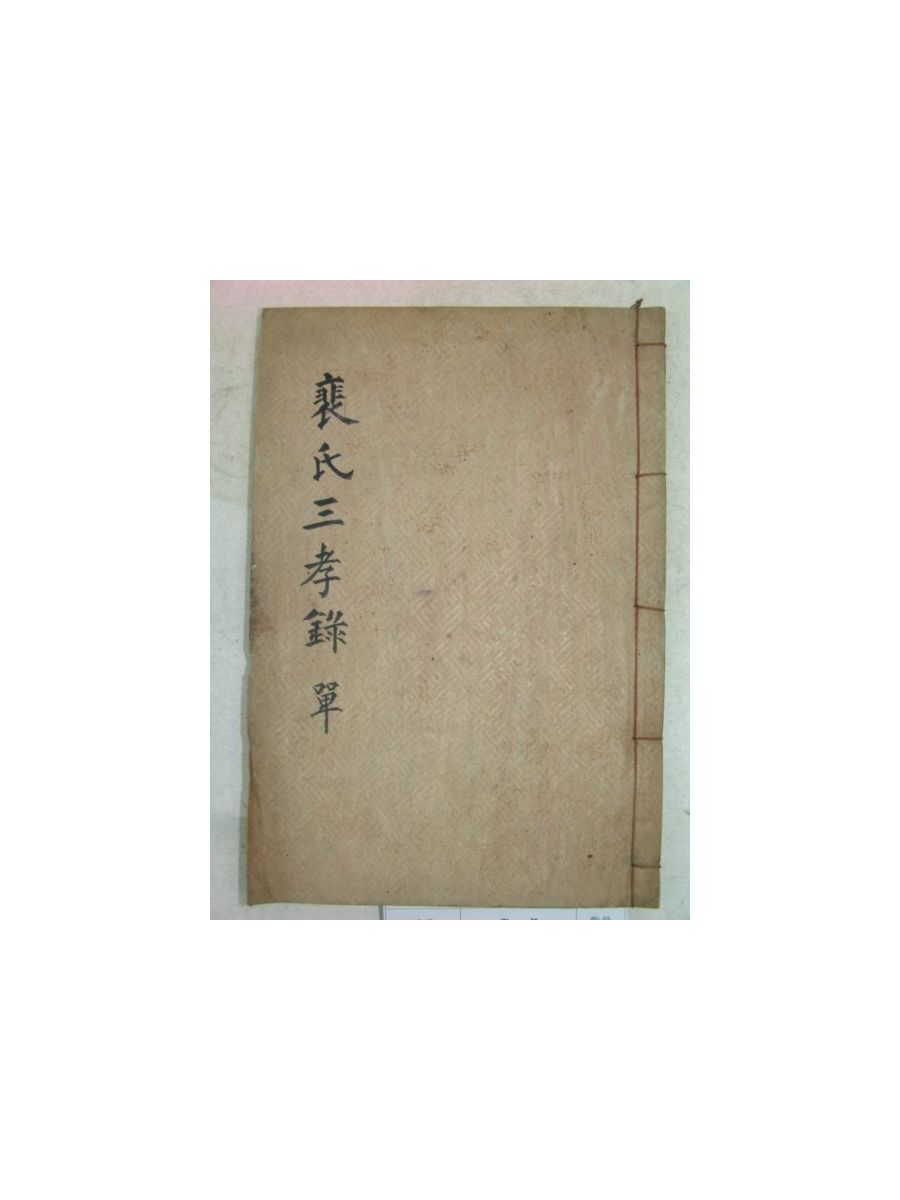 裴氏三孝錄 單